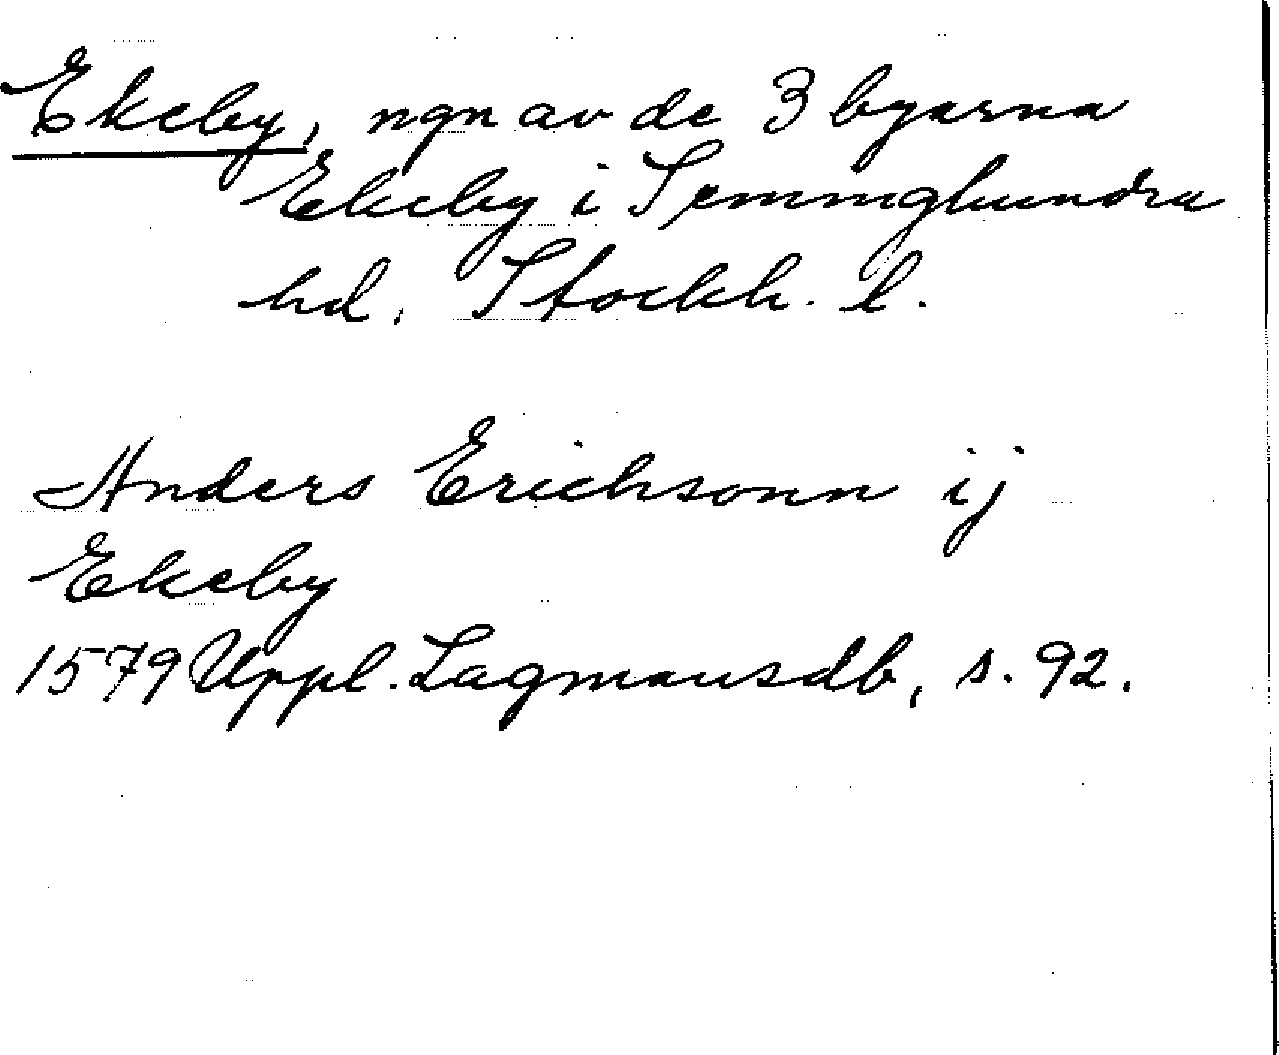 Ekeby, ngn av de 3 byarna
Ekeby i Semminghundra
hd. Stockh. l.
Anders Erichsonn ij
Ekeby
1579 Uppl. Lagmansdb, s. 92.